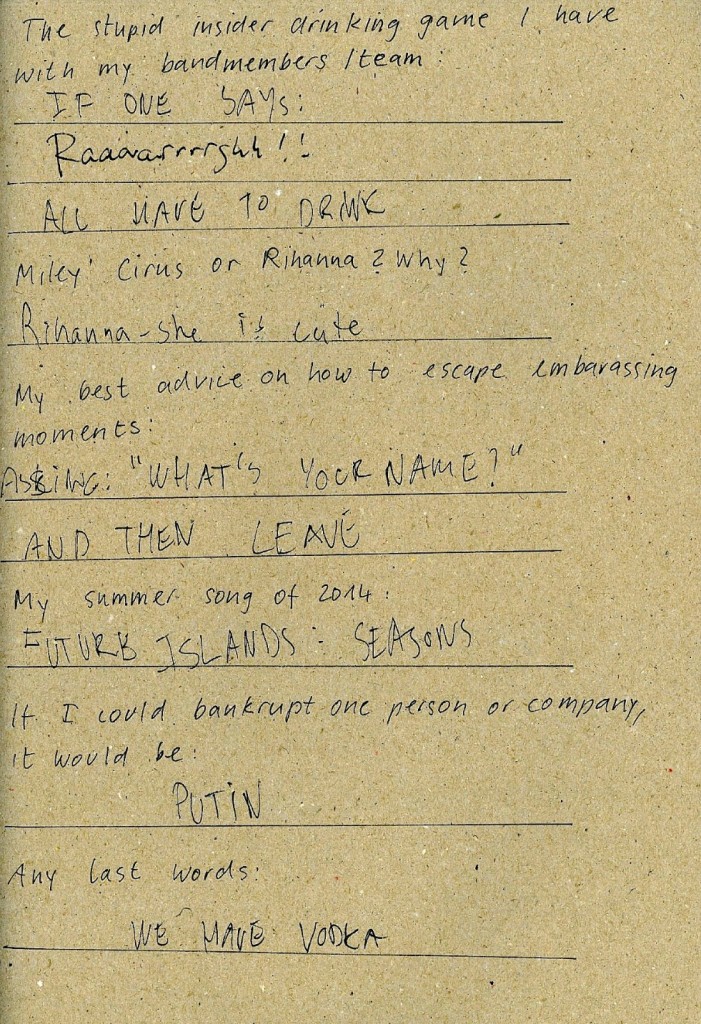 The stupid insider drinking game I have
with my bandmembers/team:
IF ONE SAYS:
Raaaaarrrrghh!!
ALL HAVE TO DRINK
Miley Cirus or Rihanna? Why?
Rihanna - she is cute
My best advice on how to escape embarassing
moments:
ASKING: "WHAT'S YOUR NAME?"
AND THEN LEAVE
My summer song of 2014:
FUTURE ISLANDS: SEASONS
If I could bankrupt one person or company,
it would be:
PUTIN
Any last words:
WE HAVE VODKA